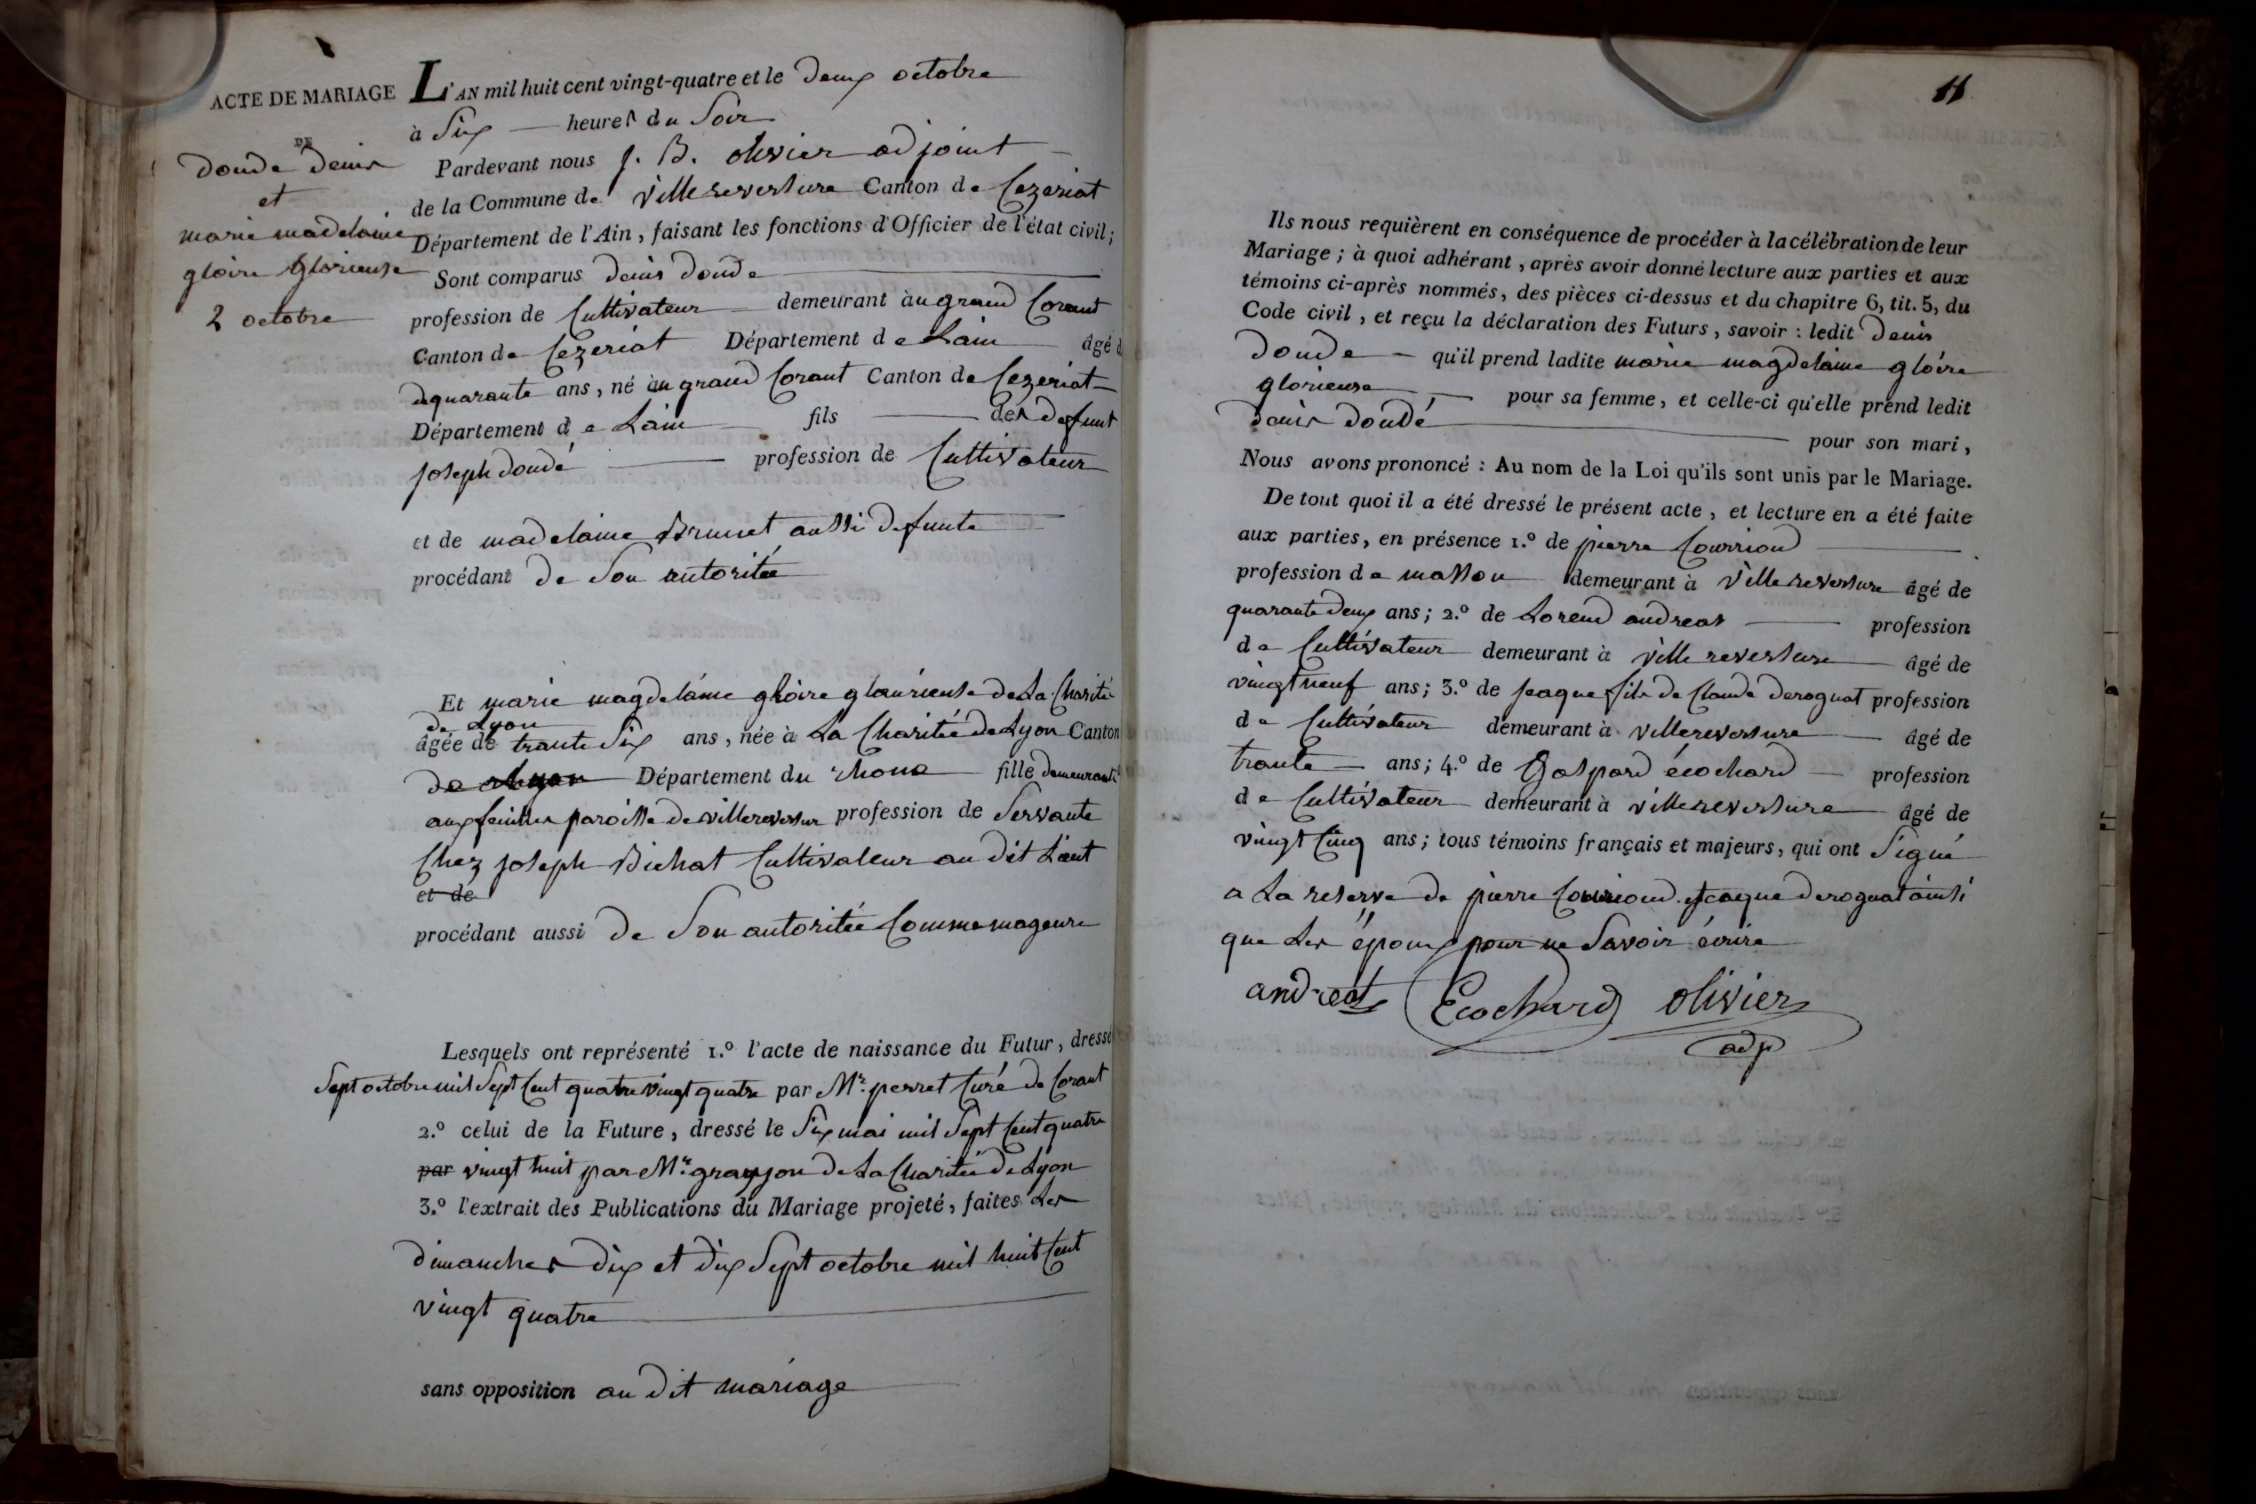 ACTE DE MARIAGE
DE
doude denis
et
marie madelaine
gloire glorieuse
2 octobre
L'AN mil huit cent vingt-quatre et le deux octobre
à Six heures du Soir
Pardevant nous J. B. olivier adjoint
de la Commune de villereversure Canton de Cezeriat
Département de l'Ain, faisant les fonctions d'Officier de l'état civil;
Sont comparus denis doude
profession de Cultivateur demeurant au grand Corant
Canton de Cezeriat Département de Lain âgé d
dequarante ans, né au grand Corant Canton de Cezeriat
Département de Lain fils des defunt
joseph doudé profession de Cultivateur
et de madelaine Brunet aussi defunte
procédant de Son autoritée
Et marie magdelaine gloire glaurieuse de La Charité
de Lyon
âgée de trante Six ans, née à La Charitée de Lyon Canton
de Lyon Département du rhone fille demeurante
aux feuilles paroisse de villereversur profession de Servante
Chez joseph Bichat Cultivateur au dit Lieut
et de
procédant aussi de Son autoritée Comme mageure
Lesquels ont représenté 1.º l'acte de naissance du Futur, dressé
Sept octobre mil Sept Cent quatre vingt quatre par Mr. perret Curé de Corant
2.º celui de la Future, dressé le Six mai mil Sept Cent quatre
par vingt huit par Mr. grayjon de La Charitée de Lyon
3.º l'extrait des Publications du Mariage projeté, faites Les
dimanches dix et dix Sept octobre mil huit Cent
vingt quatre
sans opposition au dit mariage
11
Ils nous requièrent en conséquence de procéder à la célébration de leur
Mariage; à quoi adhérant, après avoir donné lecture aux parties et aux
témoins ci-après nommés, des pièces ci-dessus et du chapitre 6, tit. 5, du
Code civil, et reçu la déclaration des Futurs, savoir : ledit denis
doude qu'il prend ladite marie magdelaine gloire
glorieuse pour sa femme, et celle-ci qu'elle prend ledit
denis doudé pour son mari,
Nous avons prononcé : Au nom de la Loi qu'ils sont unis par le Mariage.
De tout quoi il a été dressé le présent acte, et lecture en a été faite
aux parties, en présence 1.º de pierre Courriou
profession de masson demeurant à villereversure âgé de
quarante deux ans; 2.º de Lorend andreat profession
de Cultivateur demeurant à villereversure âgé de
vingt neuf ans; 3.º de jeaque fils de Claude derognat profession
de Cultivateur demeurant à villereversure âgé de
trante ans; 4.º de Gaspard écochard profession
de Cultivateur demeurant à villereversure âgé de
vingt Cinq ans; tous témoins français et majeurs, qui ont Signé
a La reserve de pierre Courrioud et jeaque derognat ainsi
que Les époux pour ne Savoir écrire
andreat Ecochard olivier
adj